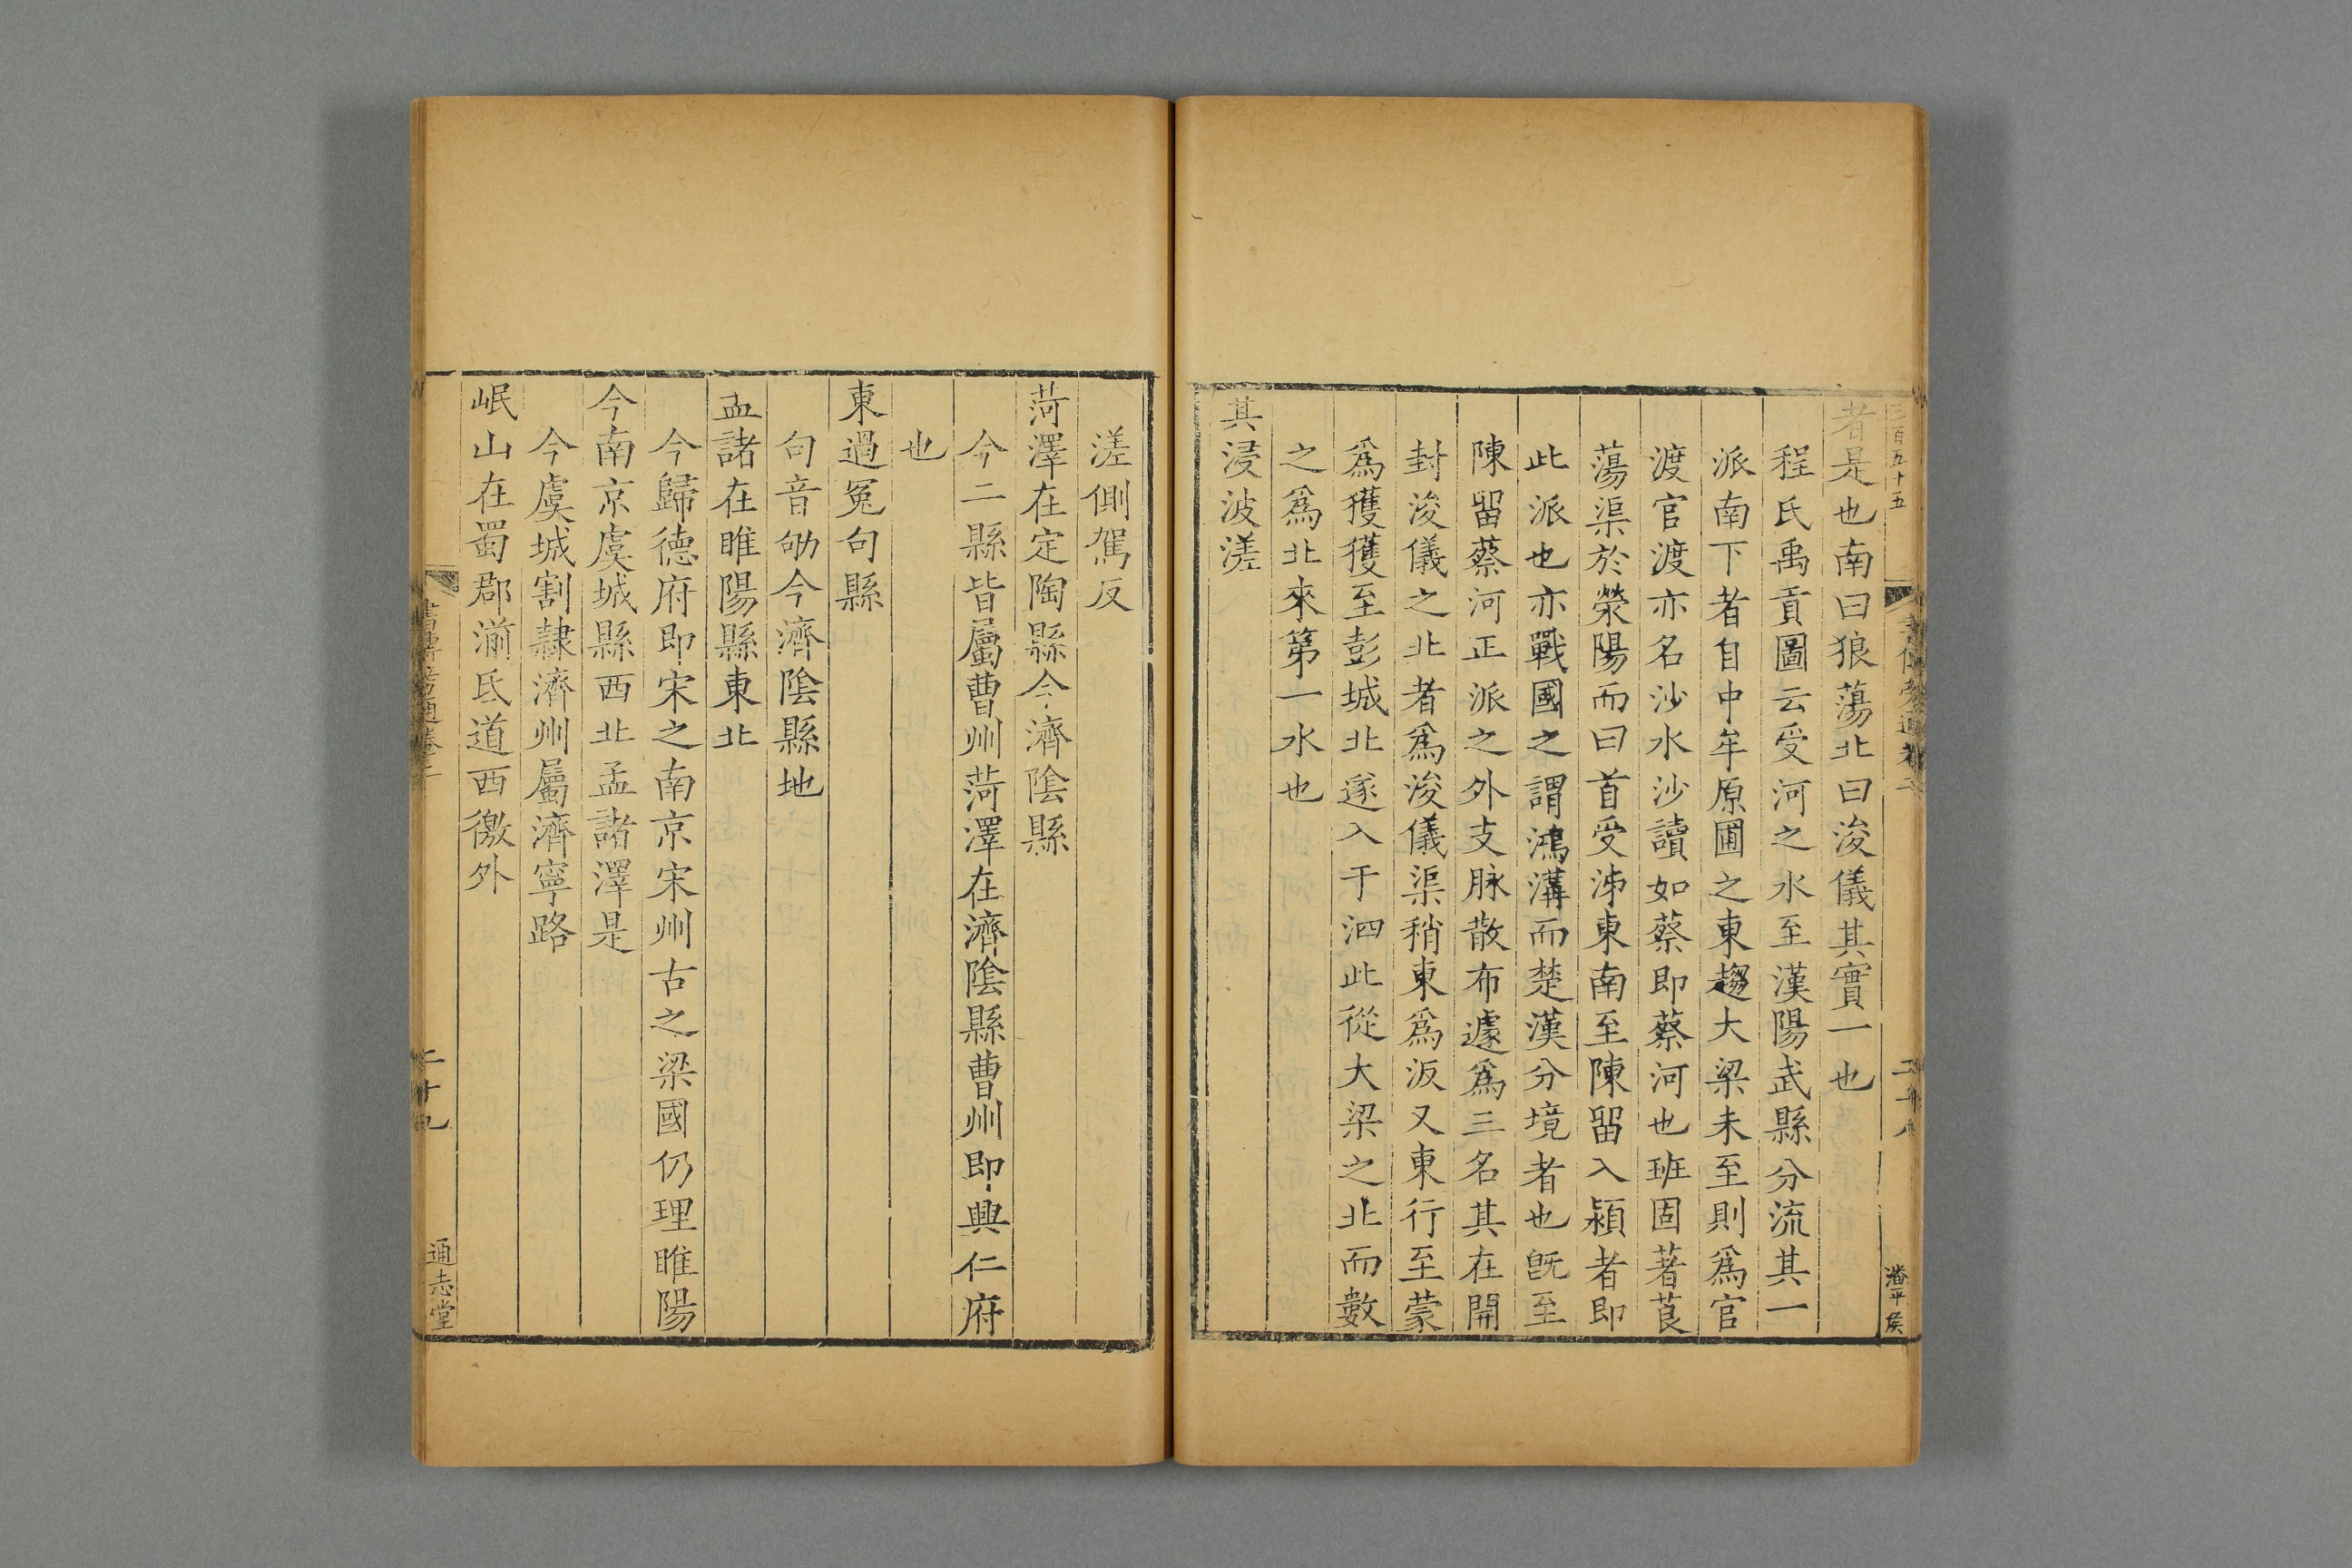 三百五十五
二十八
潘平侯
者是也南曰狼蕩北曰浚儀其實一也
程氏禹貢圖云受河之水至漢陽武縣分流其一
派南下者自中牟原圃之東趨大梁未至則爲官
渡官渡亦名沙水沙讀如蔡即蔡河也班固著莨
蕩渠於滎陽而曰首受泲東南至陳留入潁者即
此派也亦戰國之謂鴻溝而楚漢分境者也旣至
陳留蔡河正派之外支脉散布遽爲三名其在開
封浚儀之北者爲浚儀渠稍東爲汳又東行至蒙
爲獲獲至彭城北遂入于泗此從大梁之北而數
之爲北來第一水也
其浸波溠
溠側駕反
菏澤在定陶縣今濟陰縣
今二縣皆屬曹州菏澤在濟陰縣曹州即興仁府
也
東過冤句縣
句音劬今濟陰縣地
孟諸在睢陽縣東北
今歸德府即宋之南京宋州古之梁國仍理睢陽
今南京虞城縣西北孟諸澤是
今虞城割隸濟州屬濟寧路
岷山在蜀郡湔氐道西徼外
書傳旁通卷二
二十九
通志堂